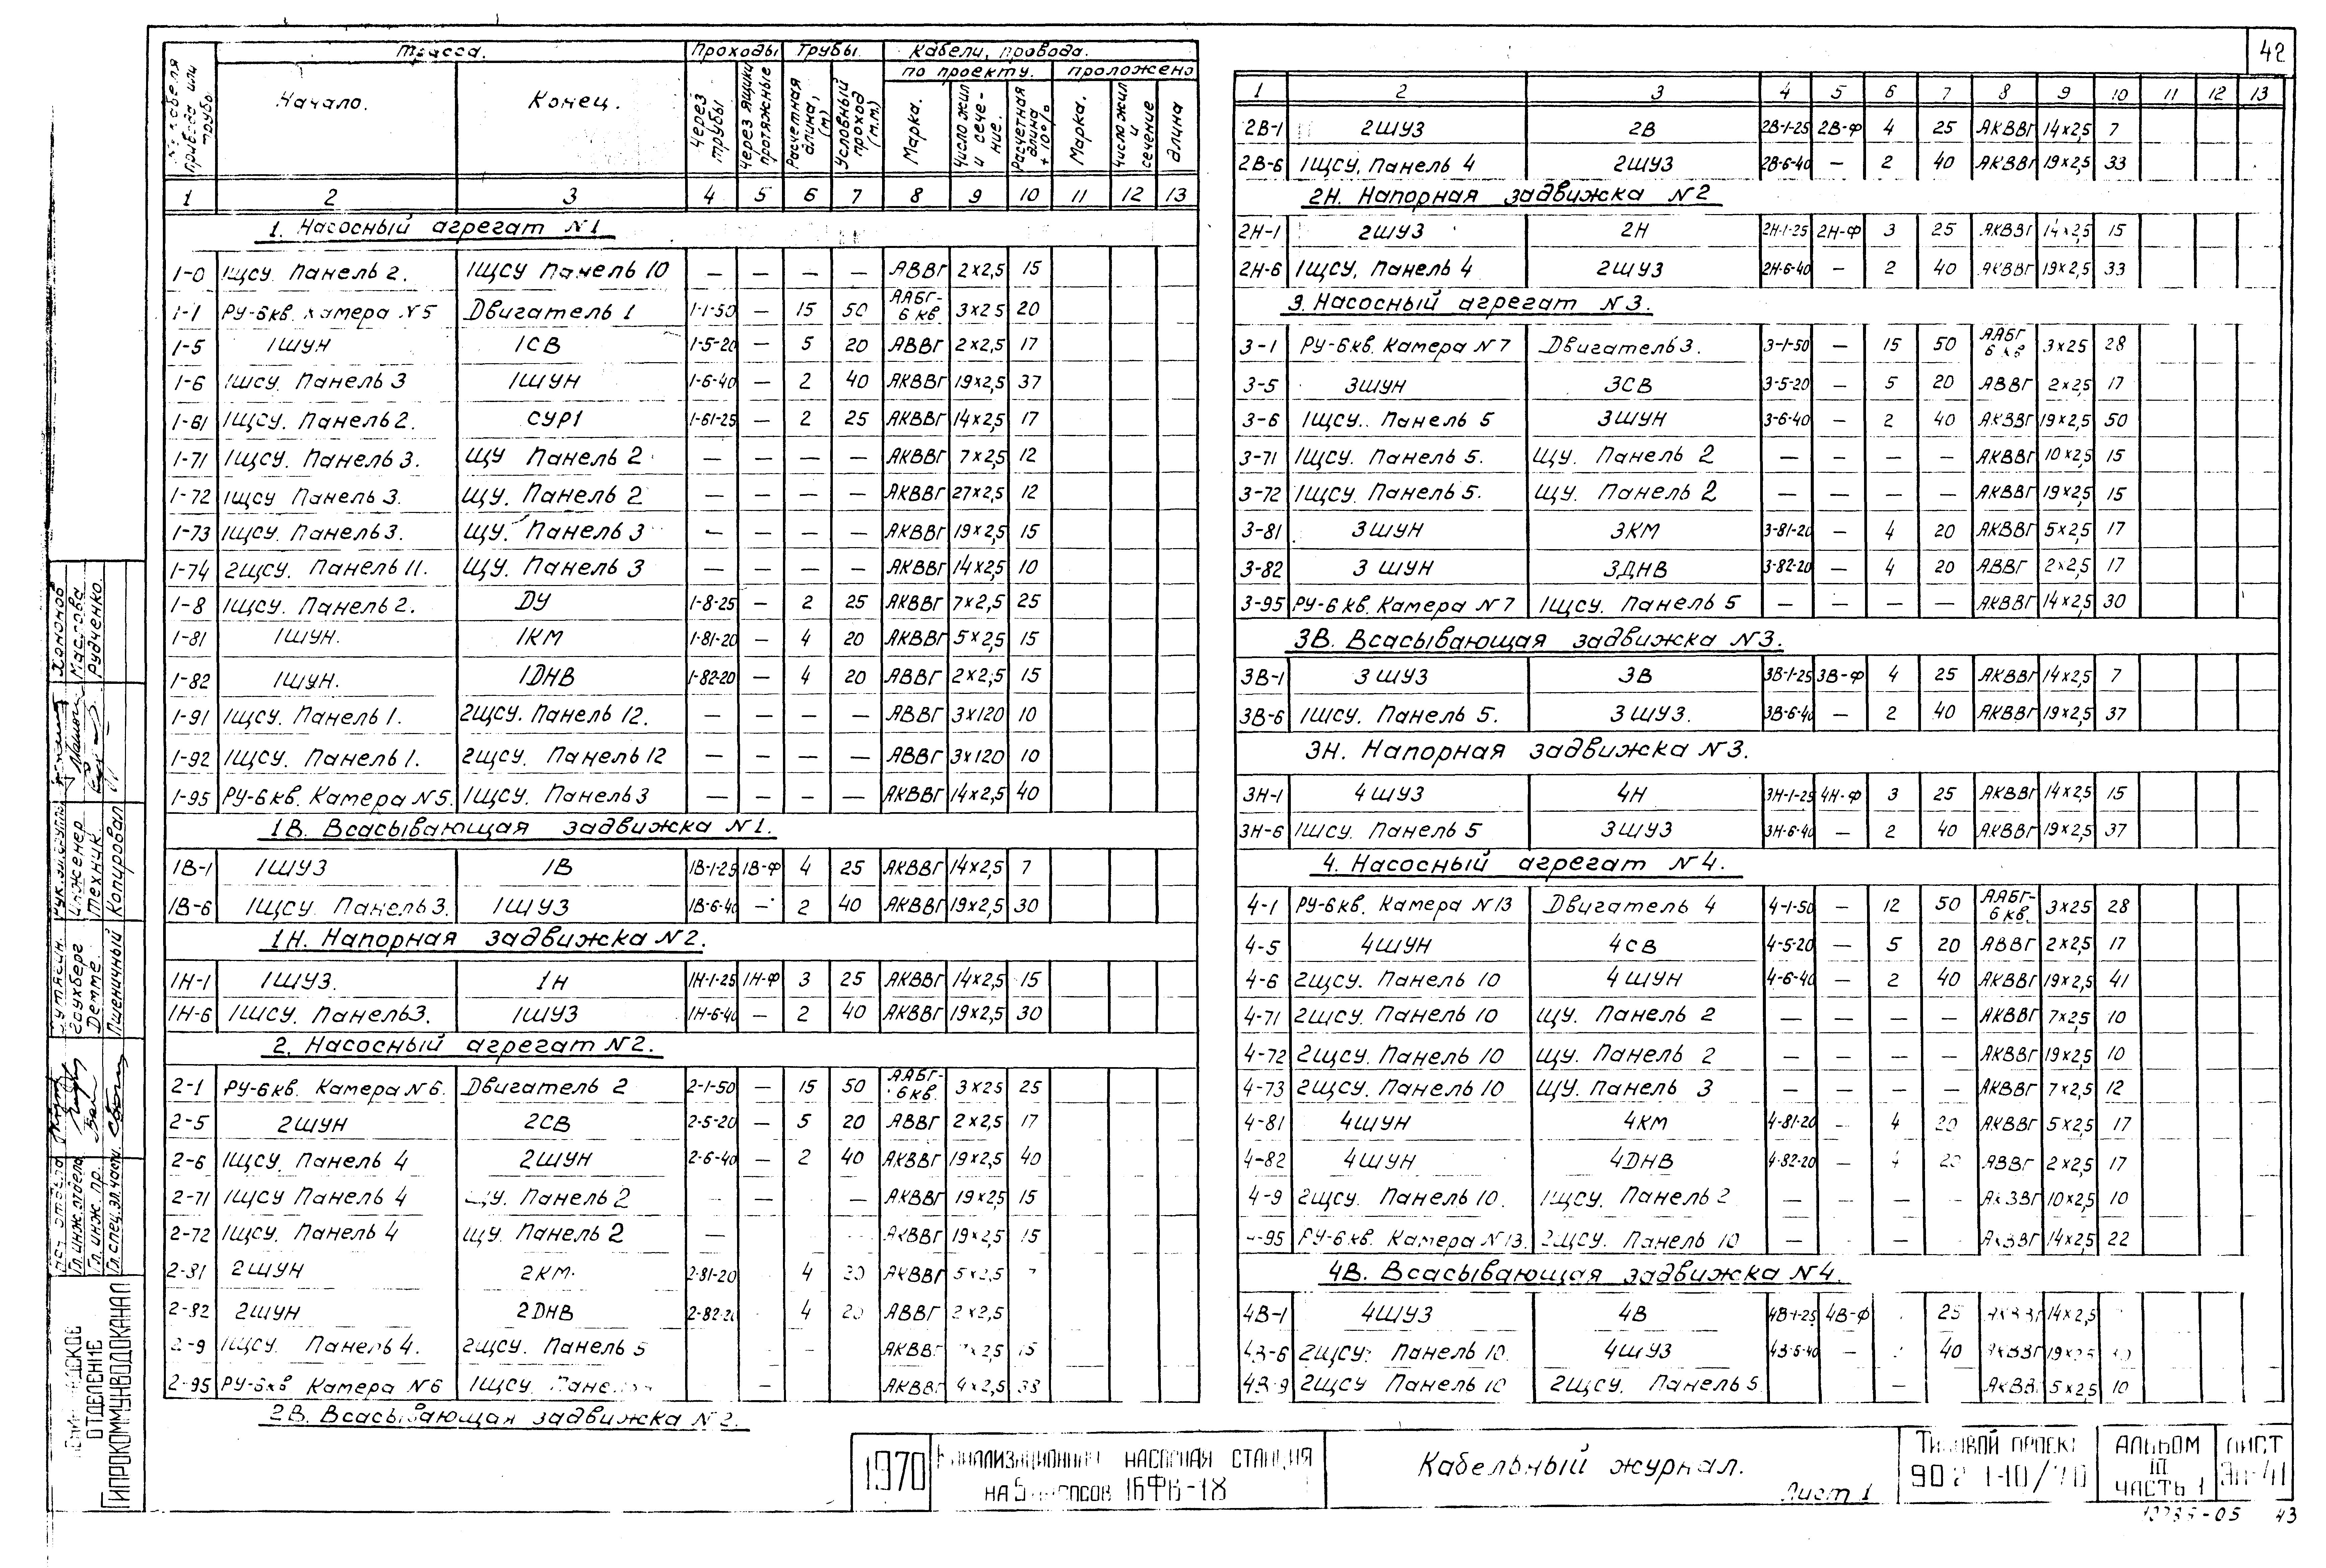 42
Трасса. Проходы Трубы. Кабели, провода.
Начало. Конец. Через трубы Через ящики протяжные Расчетная длина, (м) Условный проход (м.м.) по проекту. проложено
Марка. Число жил и сечение. Расчетная длина +10% Марка. Число жил и сечение длина
1 2 3 4 5 6 7 8 9 10 11 12 13
1. Насосный агрегат N1
1-0 1ЩСУ. Панель 2. 1ЩСУ Панель 10 — — — — АВВГ 2×2,5 15
1-1 РУ-6кв. камера N5 Двигатель 1 1-1-50 — 15 50 ААБГ-6кв 3×25 20
1-5 1ШУН 1СВ 1-5-20 — 5 20 АВВГ 2×2,5 17
1-6 1ЩСУ. Панель 3 1ШУН 1-6-40 — 2 40 АКВВГ 19×2,5 37
1-61 1ЩСУ. Панель 2. СУР1 1-61-25 — 2 25 АКВВГ 14×2,5 17
1-71 1ЩСУ. Панель 3. ЩУ Панель 2 — — — — АКВВГ 7×2,5 12
1-72 1ЩСУ Панель 3. ЩУ. Панель 2 — — — — АКВВГ 27×2,5 12
1-73 1ЩСУ. Панель 3. ЩУ. Панель 3 — — — — АКВВГ 19×2,5 15
1-74 2ЩСУ. Панель 11. ЩУ. Панель 3 — — — — АКВВГ 14×2,5 10
1-8 1ЩСУ. Панель 2. ДУ 1-8-25 — 2 25 АКВВГ 7×2,5 25
1-81 1ШУН. 1КМ 1-81-20 — 4 20 АКВВГ 5×2,5 15
1-82 1ШУН. 1DНВ 1-82-20 — 4 20 АВВГ 2×2,5 15
1-91 1ЩСУ. Панель 1. 2ЩСУ. Панель 12. — — — — АВВГ 3×120 10
1-92 1ЩСУ. Панель 1. 2ЩСУ. Панель 12 — — — — АВВГ 3×120 10
1-95 РУ-6кв. Камера N5. 1ЩСУ. Панель 3 — — — — АКВВГ 14×2,5 40
1В. Всасывающая задвижка N1.
1В-1 1ШУЗ 1В 1В-1-25 1В-Ф 4 25 АКВВГ 14×2,5 7
1В-6 1ЩСУ. Панель 3. 1ШУЗ 1В-6-40 — 2 40 АКВВГ 19×2,5 30
1Н. Напорная задвижка N2.
1Н-1 1ШУЗ. 1Н 1Н-1-25 1Н-Ф 3 25 АКВВГ 14×2,5 15
1Н-6 1ЩСУ. Панель 3. 1ШУЗ 1Н-6-40 — 2 40 АКВВГ 19×2,5 30
2. Насосный агрегат N2.
2-1 РУ-6кв. Камера N6. Двигатель 2 2-1-50 — 15 50 ААБГ-6кв. 3×25 25
2-5 2ШУН 2СВ 2-5-20 — 5 20 АВВГ 2×2,5 17
2-6 1ЩСУ. Панель 4 2ШУН 2-6-40 — 2 40 АКВВГ 19×2,5 40
2-71 1ЩСУ Панель 4 ЩУ. Панель 2 — — АКВВГ 19×2,5 15
2-72 1ЩСУ. Панель 4 ЩУ. Панель 2 — АКВВГ 19×2,5 15
2-81 2ШУН 2КМ. 2-81-20 4 20 АКВВГ 5×2,5
2-82 2ШУН 2DНВ 2-82-20 4 20 АВВГ 2×2,5
2-9 1ЩСУ. Панель 4. 2ЩСУ. Панель 5 АКВВГ 15
2-95 РУ-6кв Камера N6 1ЩСУ. АКВВГ 4×2,5 33
2В. Всасывающая задвижка N2.
1 2 3 4 5 6 7 8 9 10 11 12 13
2В-1 2ШУЗ 2В 2В-1-25 2В-Ф 4 25 АКВВГ 14×2,5 7
2В-6 1ЩСУ, Панель 4 2ШУЗ 2В-6-40 — 2 40 АКВВГ 19×2,5 33
2Н. Напорная задвижка N2
2Н-1 2ШУЗ 2Н 2Н-1-25 2Н-Ф 3 25 АКВВГ 14×2,5 15
2Н-6 1ЩСУ, Панель 4 2ШУЗ 2Н-6-40 — 2 40 АКВВГ 19×2,5 33
3. Насосный агрегат N3.
3-1 РУ-6кв. Камера N7 Двигатель 3. 3-1-50 — 15 50 ААБГ 6кв 3×25 28
3-5 3ШУН 3СВ 3-5-20 — 5 20 АВВГ 2×2,5 17
3-6 1ЩСУ.. Панель 5 3ШУН 3-6-40 — 2 40 АКВВГ 19×2,5 50
3-71 1ЩСУ. Панель 5. ЩУ. Панель 2 — — — — АКВВГ 10×2,5 15
3-72 1ЩСУ. Панель 5. ЩУ. Панель 2 — — — — АКВВГ 19×2,5 15
3-81 3ШУН 3КМ 3-81-20 — 4 20 АКВВГ 5×2,5 17
3-82 3 ШУН 3ДНВ 3-82-20 — 4 20 АВВГ 2×2,5 17
3-95 РУ-6кв. Камера N7 1ЩСУ. Панель 5 — — — — АКВВГ 14×2,5 30
3В. Всасывающая задвижка N3.
3В-1 3ШУЗ 3В 3В-1-25 3В-Ф 4 25 АКВВГ 14×2,5 7
3В-6 1ЩСУ. Панель 5. 3ШУЗ. 3В-6-40 — 2 40 АКВВГ 19×2,5 37
3Н. Напорная задвижка N3.
3Н-1 4ШУЗ 4Н 3Н-1-25 4Н-Ф 3 25 АКВВГ 14×2,5 15
3Н-6 1ЩСУ. Панель 5 3ШУЗ 3Н-6-40 — 2 40 АКВВГ 19×2,5 37
4. Насосный агрегат N4.
4-1 РУ-6кв. Камера N13 Двигатель 4 4-1-50 — 12 50 ААБГ-6кв. 3×25 28
4-5 4ШУН 4СВ 4-5-20 — 5 20 АВВГ 2×2,5 17
4-6 2ЩСУ. Панель 10 4ШУН 4-6-40 — 2 40 АКВВГ 19×2,5 41
4-71 2ЩСУ. Панель 10 ЩУ. Панель 2 — — — — АКВВГ 7×2,5 10
4-72 2ЩСУ. Панель 10 ЩУ. Панель 2 — — — — АКВВГ 19×2,5 10
4-73 2ЩСУ. Панель 10 ЩУ. Панель 3 — — — — АКВВГ 7×2,5 12
4-81 4ШУН 4КМ 4-81-20 — 4 20 АКВВГ 5×2,5 17
4-82 4ШУН 4DНВ 4-82-20 — 4 20 АВВГ 2×2,5 17
4-9 2ЩСУ. Панель 10. 1ЩСУ. Панель 2 — — — АКВВГ 10×2,5 10
4-95 РУ-6кв. Камера N13. 2ЩСУ. Панель 10 — — — АКВВГ 14×2,5 22
4В. Всасывающая задвижка N4.
4В-1 4ШУЗ 4В 4В-1-25 4В-Ф 25 АКВВГ 14×2,5
4В-6 2ЩСУ. Панель 10. 4ШУЗ 4В-6-40 — 40 АКВВГ 19×2,5
4В-9 2ЩСУ Панель 10 2ЩСУ. Панель 5 — АКВВГ 5×2,5 10
Хононов
Маслова
Рудченко.
Инженер
Техник
Копировал
Гоухберг
Демме.
Пшеничный
Гл.инж.отдела
Гл. инж. пр.
Гл.спец.эл.части
ОТДЕЛЕНИЕ
ГИПРОКОММУНВОДОКАНАЛ
1970
Канализационная насосная станция
на 5 насосов 16ФВ-18
Кабельный журнал.
Лист 1
Типовой проект
902-1-10/70
Альбом
III
часть 1
Лист
ЭЛ-41
43